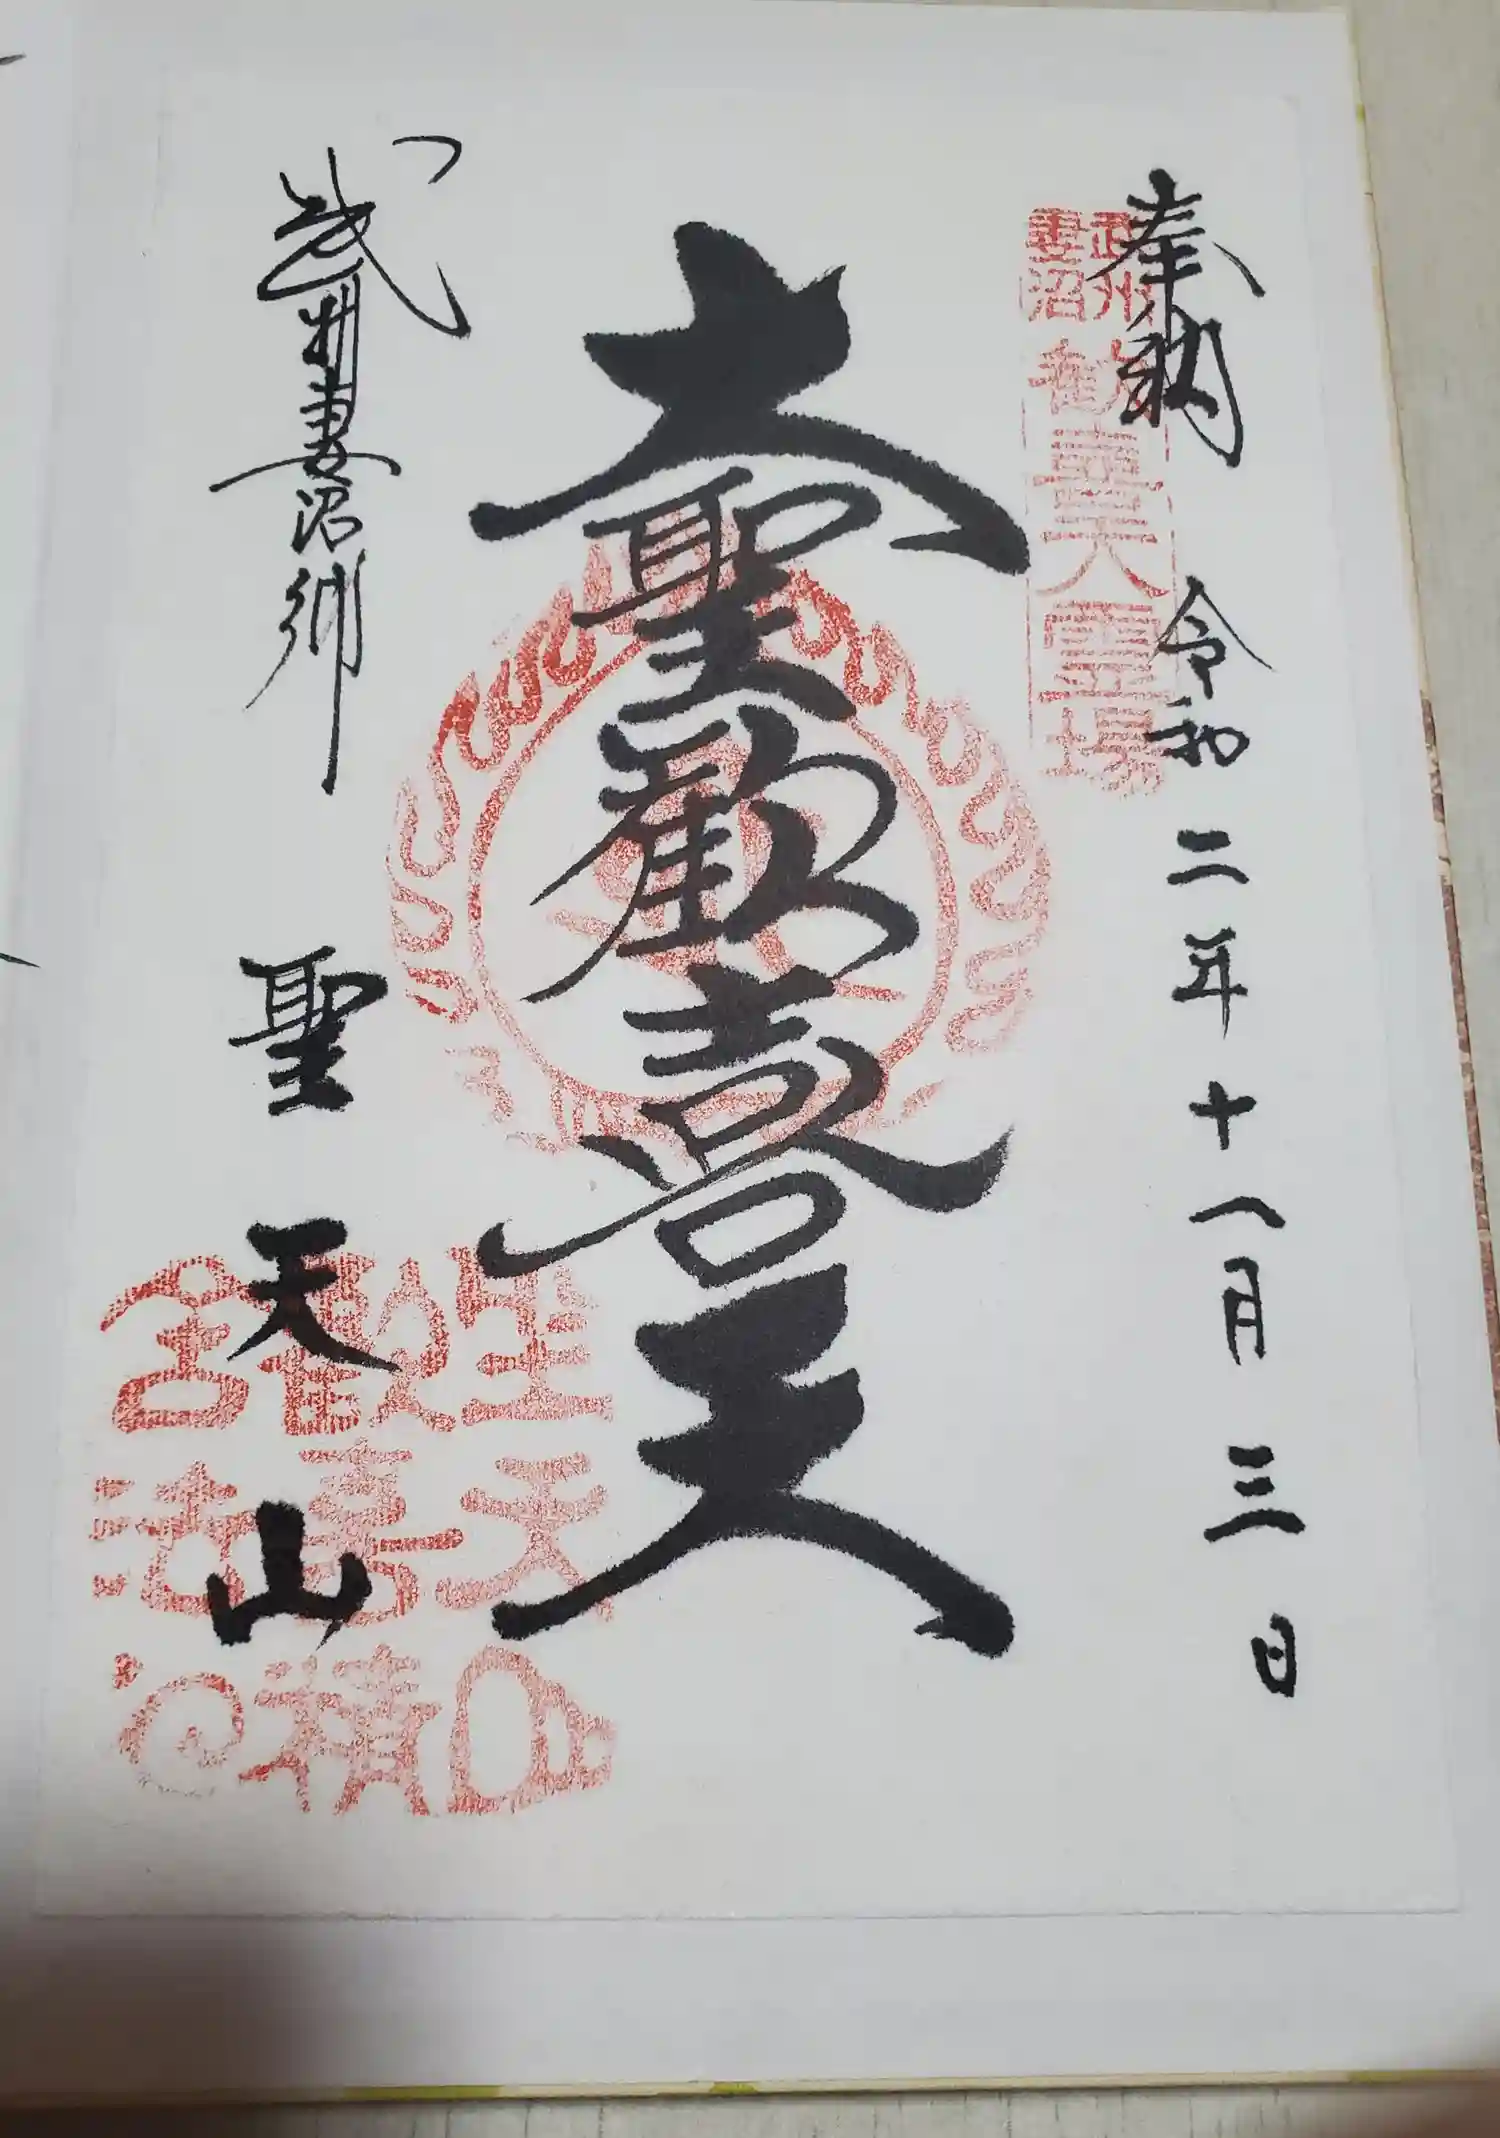 奉納 令和二年十一月三日
武州妻沼 歓喜天霊場
大聖歓喜天
武州妻沼郷 聖天山
聖天山
歓喜